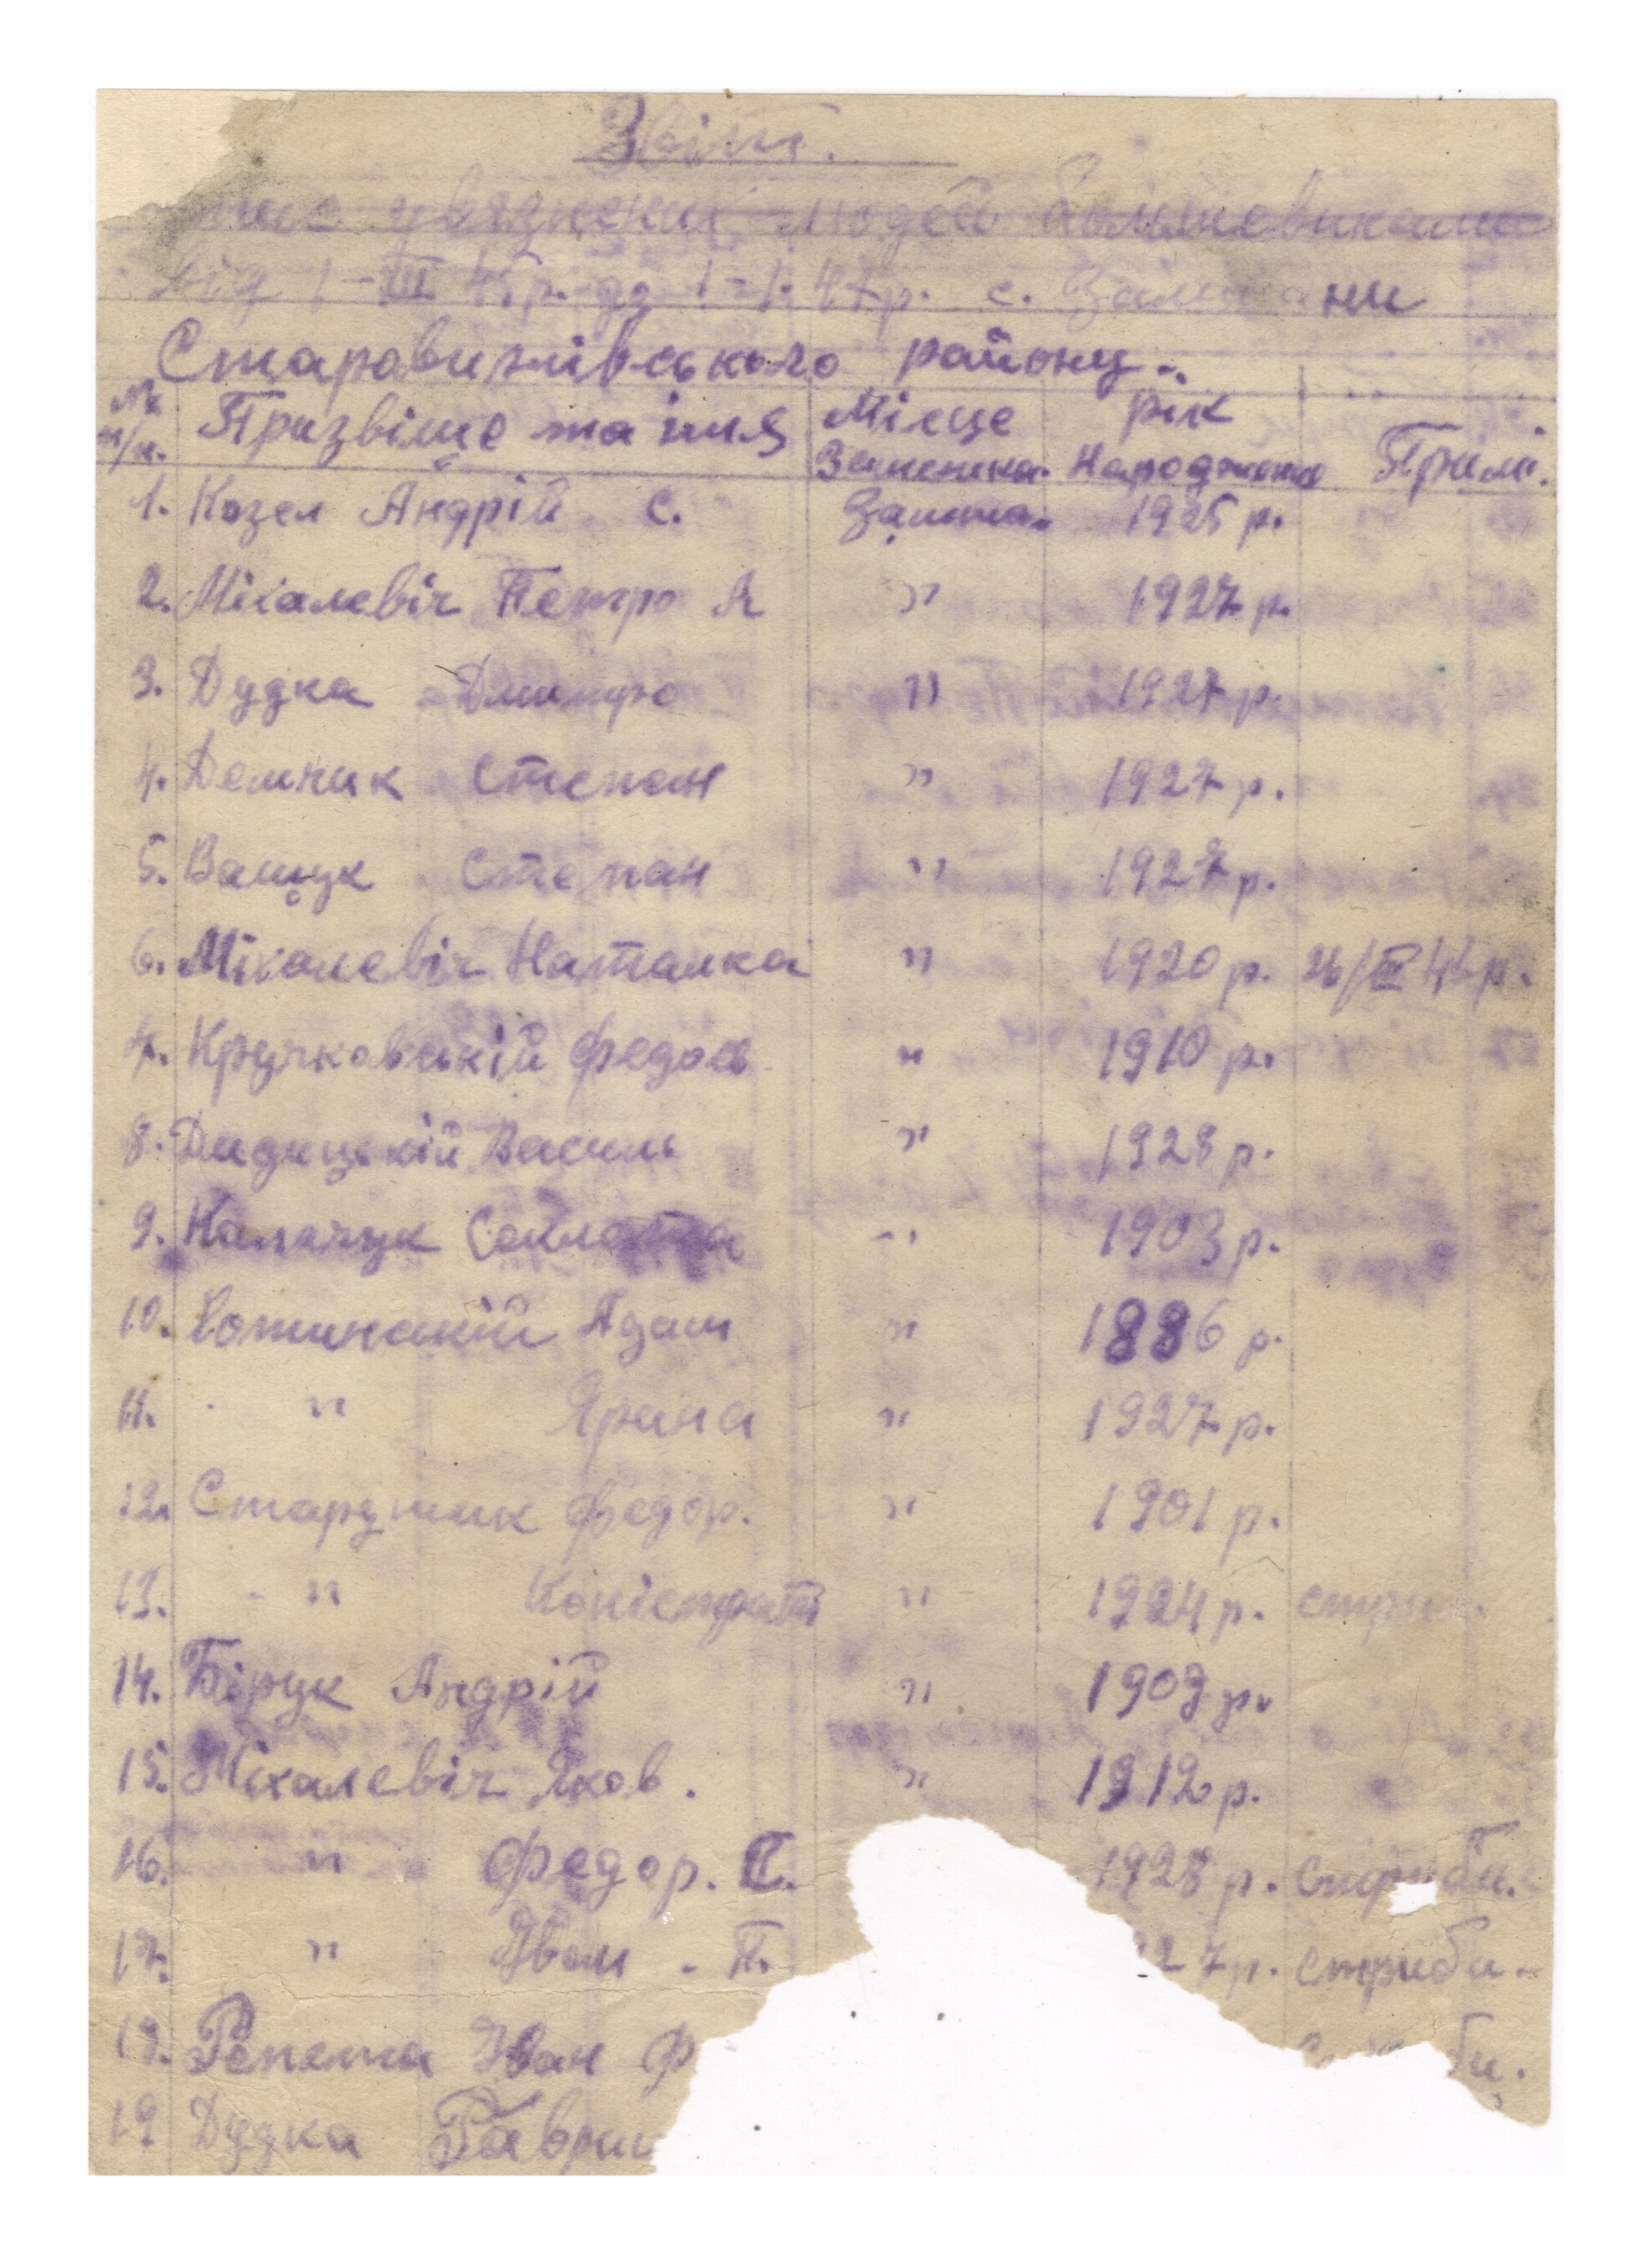 Звіт.
людей большевиками
від 1-III 45р. до 1-1. 47р. с.
Старовижлівського району.
№ п/п. Призвіще та імя Місце Замешка. рік Народження Примі.
1. Козел Андрій С. 1925 р.
2. Міхалевіч Петро Я " 1927 р.
3. Дудка Дмитро " 1927 р.
4. Демчик Степан " 1927 р.
5. Ващук Степан " 1927 р.
6. Міхалевіч Наталка " 1920 р. 26/III 46 р.
7. Кручковський Федось " 1910 р.
8. Дидицький Василь " 1928 р.
9. " 1903 р.
10. Адам " 1886 р.
11. " Ярина " 1927 р.
12. Федор. " 1901 р.
13. " " 1924 р.
14. Бірук Андрій " 1909 р.
15. Міхалевіч Яков. " 1912 р.
16. " Федор. П. 1928 р. стриби.
17. " Іван. П. 27 р. стриби.
18. Репета Іван Ф би.
19 Дудка Гаври